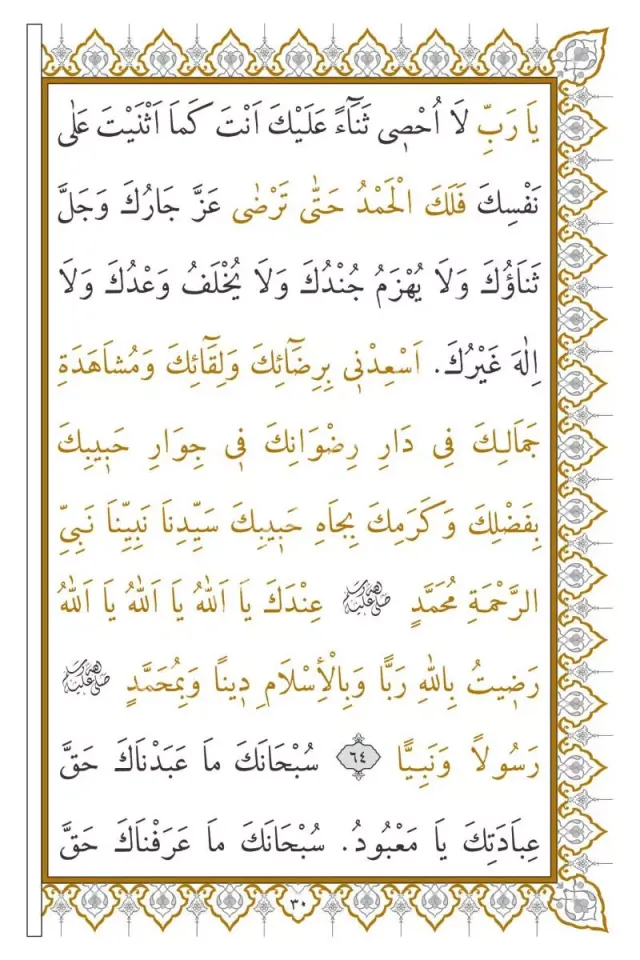 يَا رَبِّ لَا اُحْصِي ثَنَٓاءً عَلَيْكَ اَنْتَ كَمَا اَثْنَيْتَ عَلٰى
نَفْسِكَ فَلَكَ الْحَمْدُ حَتّٰى تَرْضٰى عَزَّ جَارُكَ وَجَلَّ
ثَنَاؤُكَ وَلَا يُهْزَمُ جُنْدُكَ وَلَا يُخْلَفُ وَعْدُكَ وَلَا
اِلٰهَ غَيْرُكَ. اَسْعِدْنِي بِرِضَٓائِكَ وَلِقَٓائِكَ وَمُشَاهَدَةِ
جَمَالِكَ فِي دَارِ رِضْوَانِكَ فِي جِوَارِ حَبِيبِكَ
بِفَضْلِكَ وَكَرَمِكَ بِجَاهِ حَبِيبِكَ سَيِّدِنَا نَبِيِّنَا نَبِيِّ
الرَّحْمَةِ مُحَمَّدٍ ﷺ عِنْدَكَ يَا اَللّٰهُ يَا اَللّٰهُ يَا اَللّٰهُ
رَضِيتُ بِاللّٰهِ رَبًّا وَبِالْاِسْلَامِ دِينًا وَبِمُحَمَّدٍ ﷺ
رَسُولًا وَنَبِيًّا ٦٤ سُبْحَانَكَ مَا عَبَدْنَاكَ حَقَّ
عِبَادَتِكَ يَا مَعْبُودُ. سُبْحَانَكَ مَا عَرَفْنَاكَ حَقَّ
٣٠